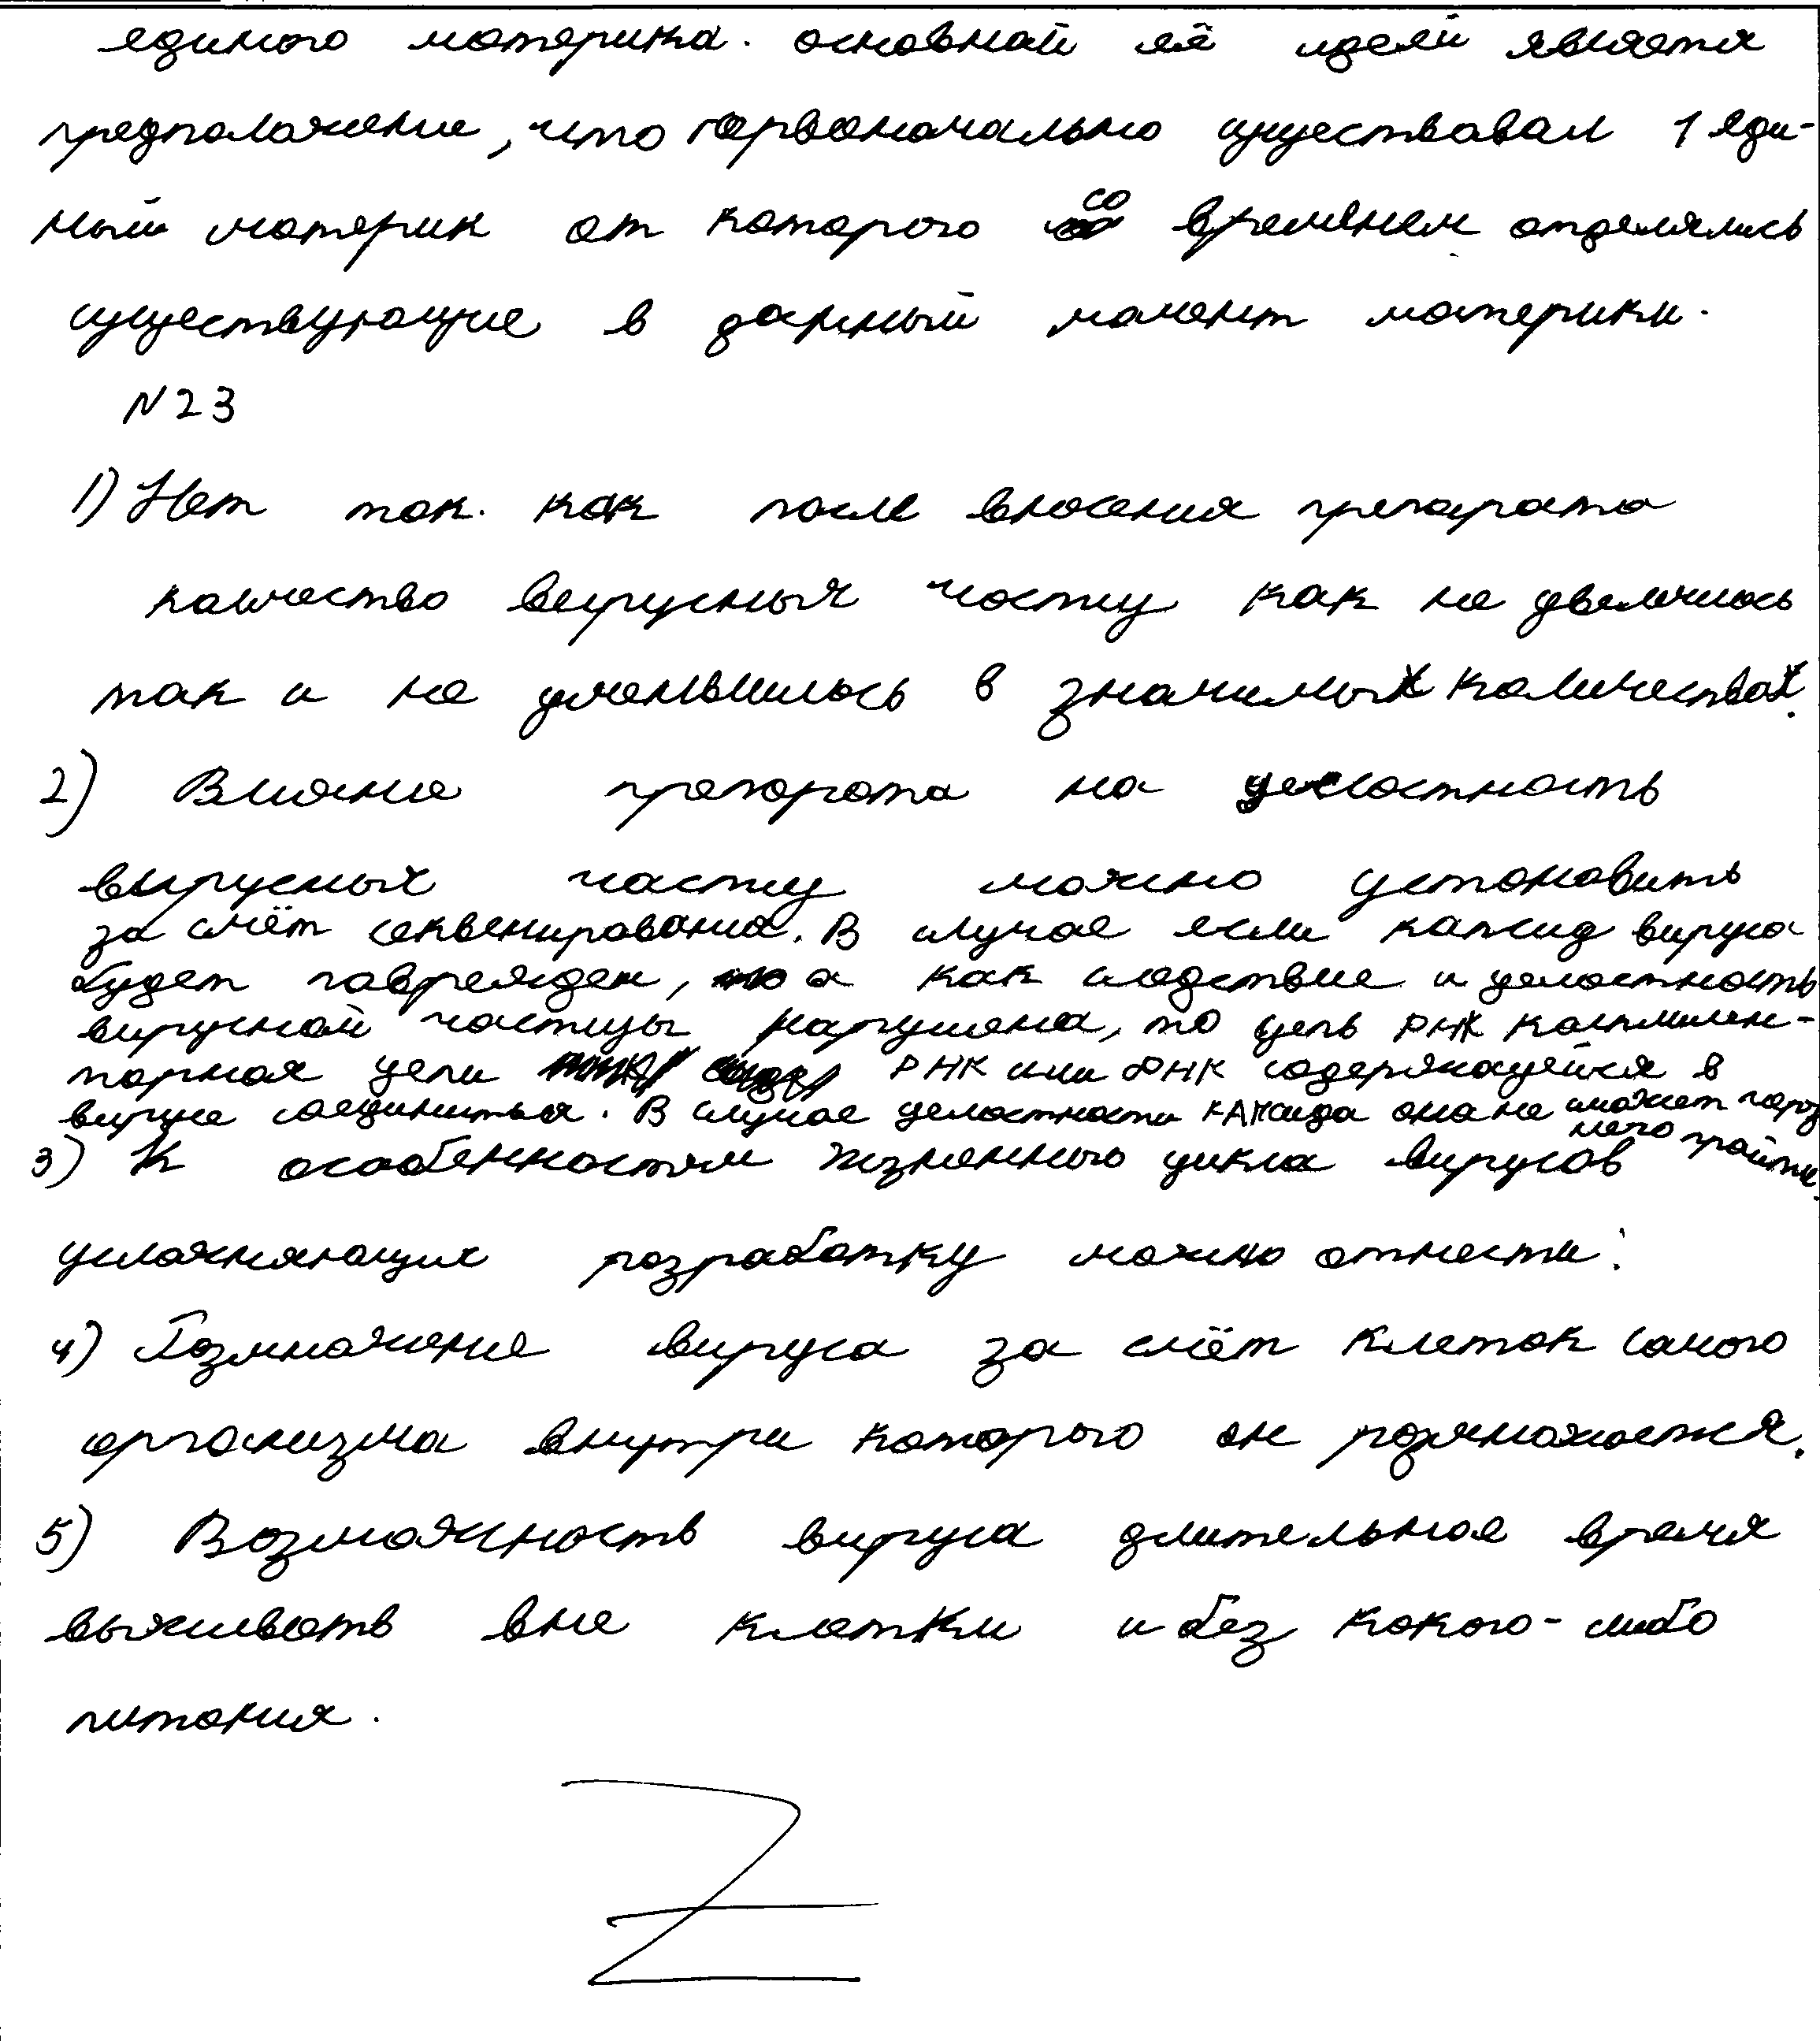 единого материка. основной её идеей является
предположение, что первоначально существовал 1 еди-
ный материк от которого со временем отделялись
существующие в данный момент материки.
N23
1) Нет так. как после внесения препарата
качество вирусных частиц как не увеличилось
так и не уменьшилось в значимых количествах.
2) Влияние препарата на целостность
вирусных частиц можно установить
за счёт секвенирования. В случае если капсид вируса
будет повреждён, а как следствие и целостность
вирусной частицы нарушена, то цепь РНК комплимен-
тарная цепи РНК или ДНК содержащейся в
вирусе соединиться. В случае целостности капсида она не сможет через
него пройти.
3) К особенностям жизненного цикла вирусов
усложняющих разработку можно отнести:
4) Размножение вируса за счёт клеток самого
организма внутри которого он размножается.
5) Возможность вируса длительное время
выживать вне клетки и без какого-либо
питания.
Z